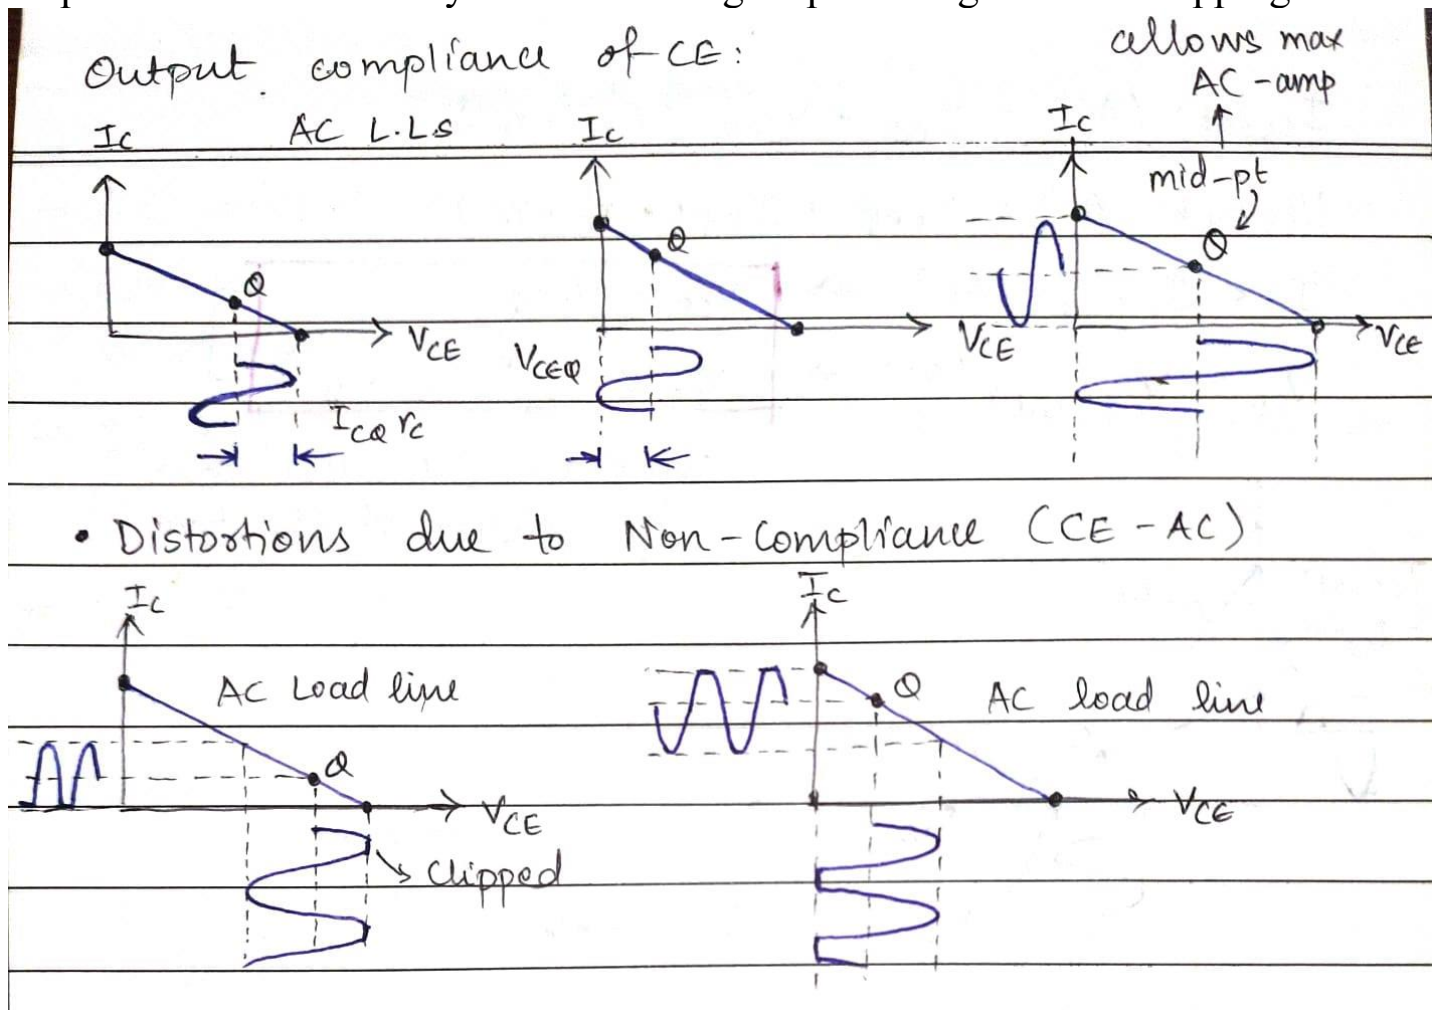 Output compliance of CE:
allows max
AC-amp
AC L.Ls
Ic
Ic
Ic
mid-pt
Q
Q
Q
VCE
VCEQ
VCE
VCE
ICQ rc
• Distortions due to Non-Compliance (CE-AC)
Ic
Ic
AC Load line
Q
AC load line
Q
VCE
VCE
Clipped